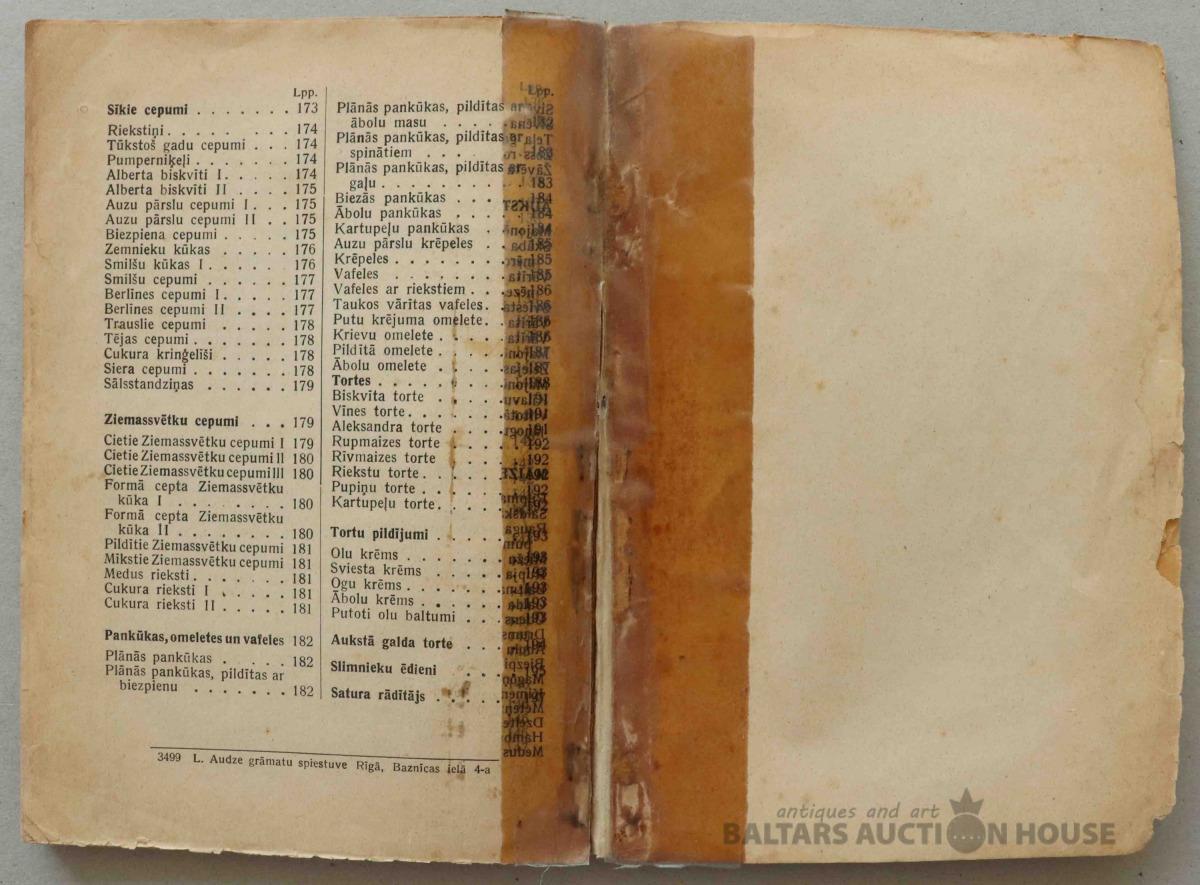 Lpp.
Sīkie cepumi . . . . . . . 173
Riekstiņi . . . . . . . . 174
Tūkstoš gadu cepumi . . . 174
Pumperniķeļi . . . . . . . 174
Alberta biskvīti I . . . . . 174
Alberta biskvīti II . . . . 175
Auzu pārslu cepumi I . . . 175
Auzu pārslu cepumi II . . 175
Biezpiena cepumi . . . . . 175
Zemnieku kūkas . . . . . 176
Smilšu kūkas I . . . . . . 176
Smilšu cepumi . . . . . . 177
Berlīnes cepumi I . . . . . 177
Berlīnes cepumi II . . . . 177
Trauslie cepumi . . . . . 178
Tējas cepumi . . . . . . . 178
Cukura kriņģelīši . . . . . 178
Siera cepumi . . . . . . . 178
Sālsstandziņas . . . . . . 179
Ziemassvētku cepumi . . . 179
Cietie Ziemassvētku cepumi I 179
Cietie Ziemassvētku cepumi II 180
Cietie Ziemassvētku cepumi III 180
Formā cepta Ziemassvētku
kūka I . . . . . . . . 180
Formā cepta Ziemassvētku
kūka II . . . . . . . . 180
Pildītie Ziemassvētku cepumi 181
Mīkstie Ziemassvētku cepumi 181
Medus rieksti . . . . . . . 181
Cukura rieksti I . . . . . 181
Cukura rieksti II . . . . . 181
Pankūkas, omeletes un vafeles 182
Plānās pankūkas . . . . . 182
Plānās pankūkas, pildītas ar
biezpienu . . . . . . . 182
Lpp.
Plānās pankūkas, pildītas ar
ābolu masu . . . . . 182
Plānās pankūkas, pildītas ar
spinātiem . . . . . . 183
Plānās pankūkas, pildītas ar
gaļu . . . . . . . . . 183
Biezās pankūkas . . . . 184
Ābolu pankūkas . . . . 184
Kartupeļu pankūkas . . 184
Auzu pārslu krēpeles . . 185
Krēpeles . . . . . . . . 185
Vafeles . . . . . . . . 185
Vafeles ar riekstiem . . . 186
Taukos vārītas vafeles . . 186
Putu krējuma omelete . . 186
Krievu omelete . . . . . 186
Pildītā omelete . . . . . 187
Ābolu omelete . . . . . 187
Tortes . . . . . . . . . 188
Biskvīta torte . . . . . 191
Vīnes torte . . . . . . . 191
Aleksandra torte . . . . 191
Rupmaizes torte . . . . 192
Rīvmaizes torte . . . . 192
Riekstu torte . . . . . . 192
Pupiņu torte . . . . . . 192
Kartupeļu torte . . . . . 192
Tortu pildījumi . . . . . 193
Olu krēms . . . . . . . 193
Sviesta krēms . . . . . 193
Ogu krēms . . . . . . . 193
Ābolu krēms . . . . . . 193
Putoti olu baltumi . . . 193
Aukstā galda torte . . .
Slimnieku ēdieni . . . 195
Satura rādītājs . . . . .
3499 L. Audze grāmatu spiestuve Rīgā, Baznīcas ielā 4-a
antiques and art
BALTARS AUCTION HOUSE